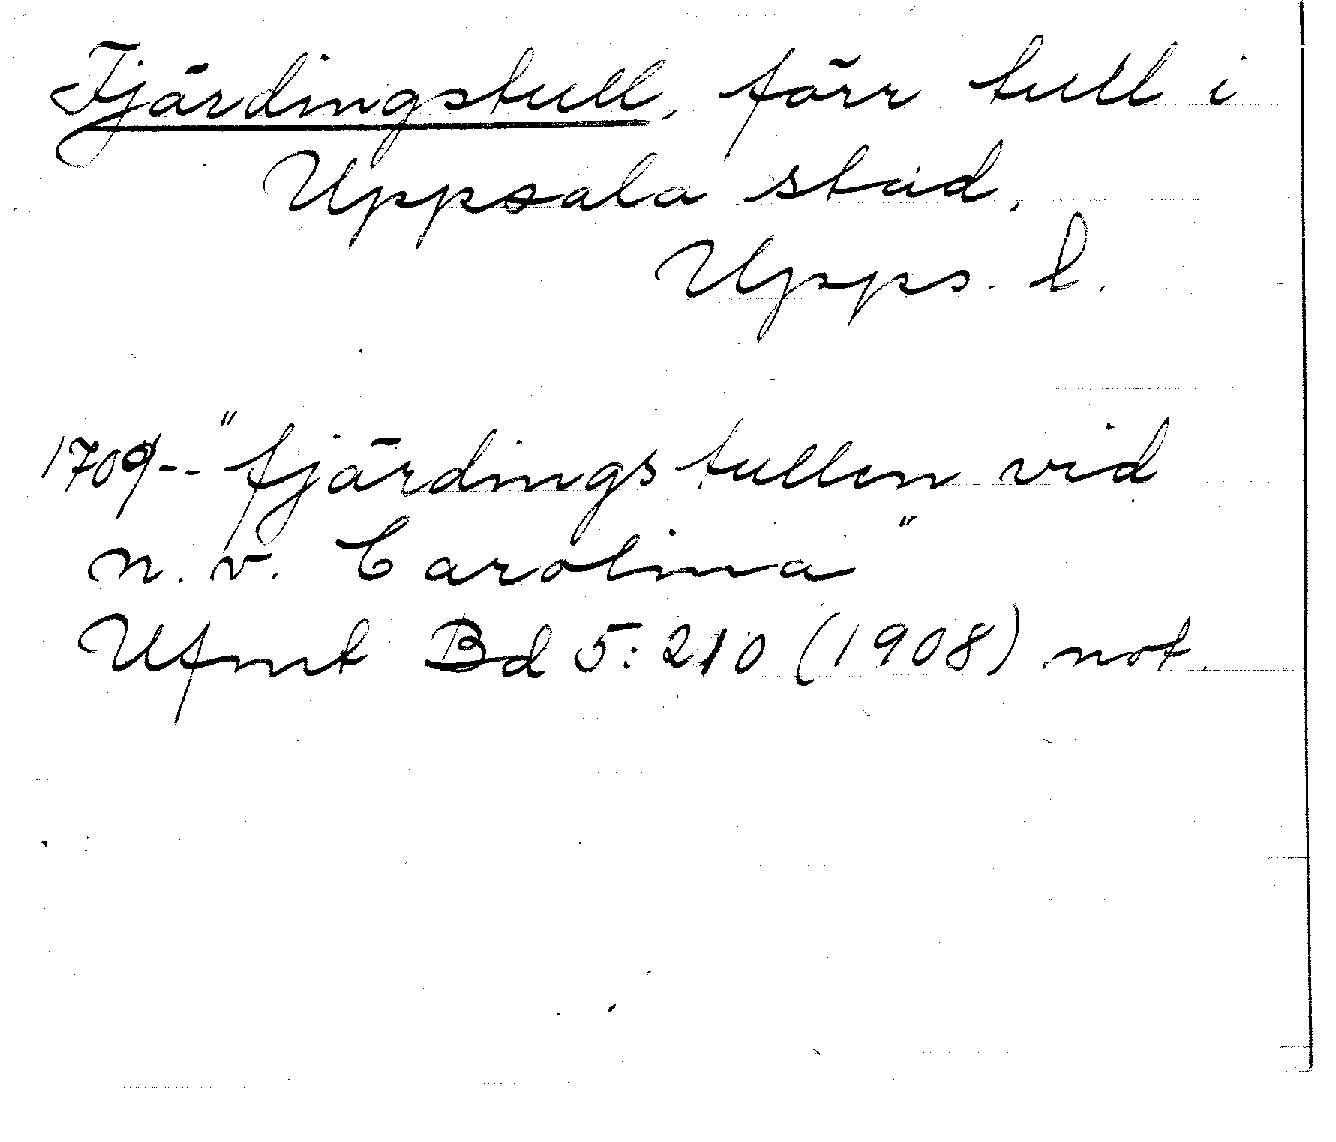 Fjärdingstull, förr tull i
Uppsala stad,
Upps. l.
1709-- "fjärdingstullen vid
n. v. Carolina"
Ufmt Bd 5:210 (1908) not.